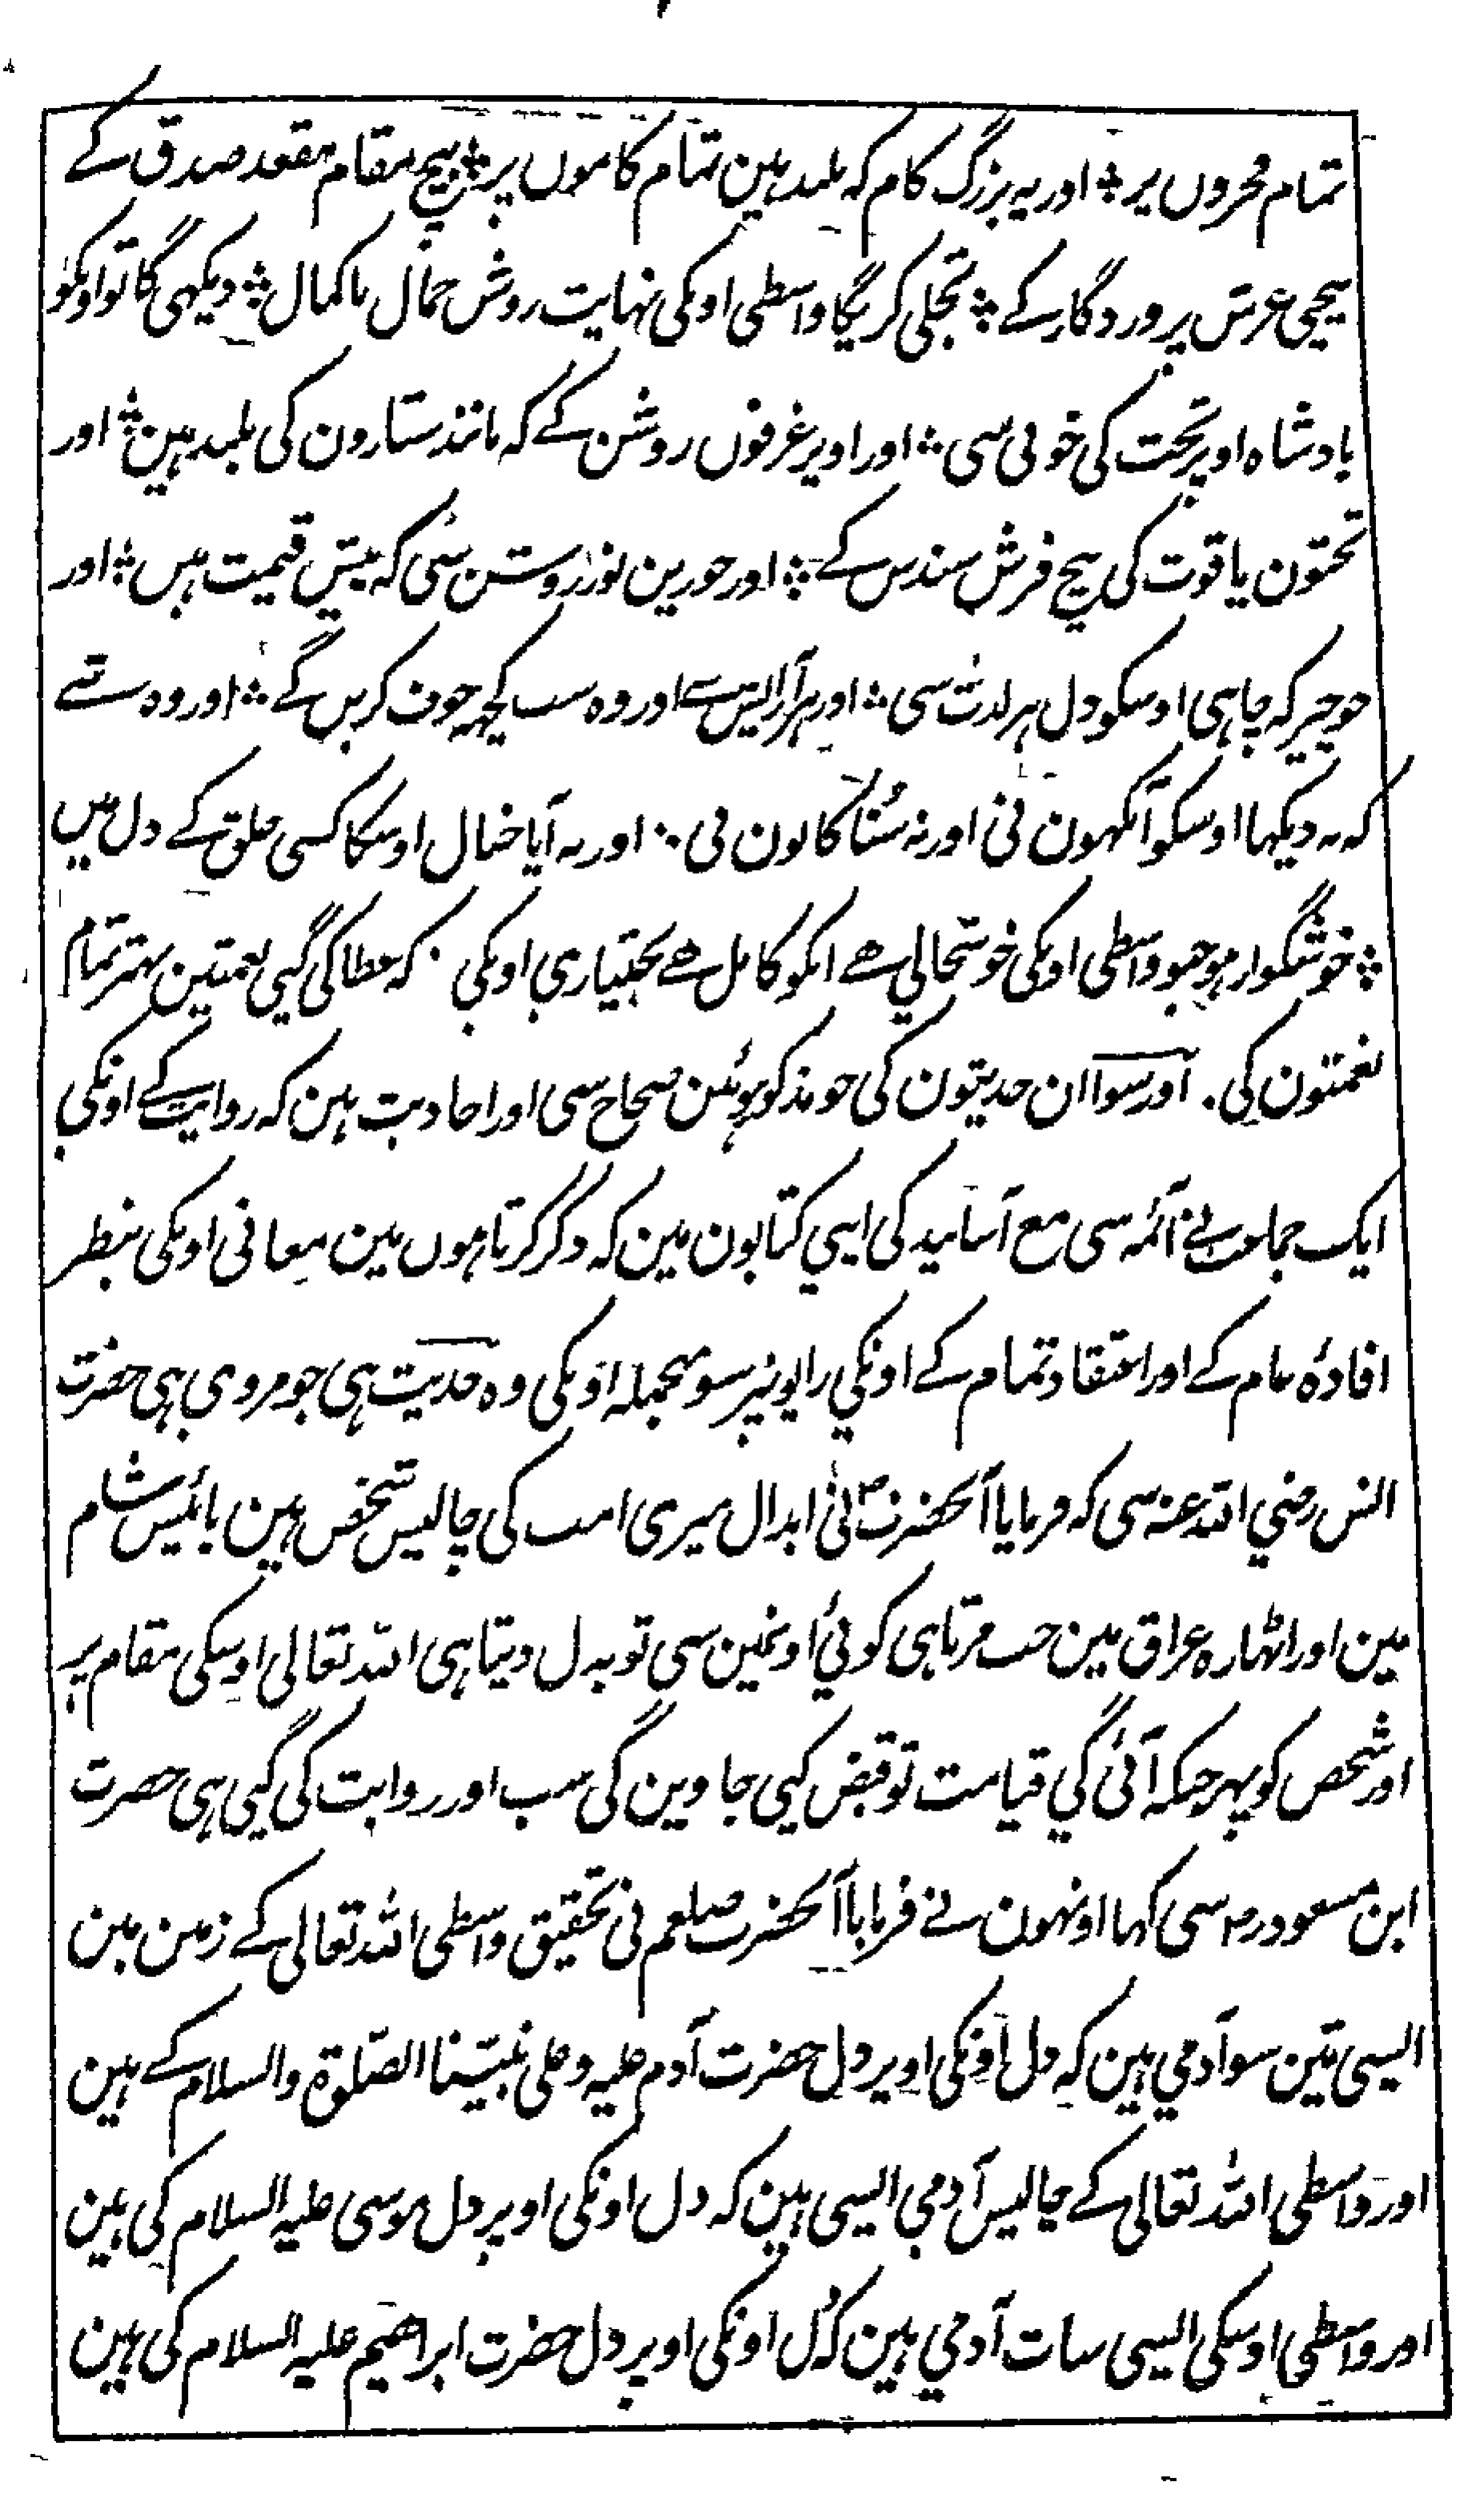 تمام فخروں پر ؞ اور یہ بزرگ کام کہ بلند ہین تمام کاموں پر ؞ بیچ مقام مقعد صدق کے
نیچی عرش پروردگار کے ؞ تجلی کریگا واسطی اونکی نہایت روشن جمال باکمال ؞ دیکہی گا تو اونکو
بادشاہ اوپر تخت کی خوبی سی ؞ اور اوپر غرفوں روشن کے کہ مانند ستارون کی بلند ہین ؞ اور
تختون یاقوت کی بیچ فرش سندس کے ؞ اور حورین نور روشن سی کہ بیش قیمت ہیں ؞ اور
جو چیز کہ چاہی اوسکو دل ہر لذت سی ؞ اور ہر آرایش سے اور وہ سب کچہ خوف کریں گے ؞ اور وہ شے
کہ نہ دیکہا اوسکو آنکہون نی اور نہ سُنا کانون نی ۰ اور نہ آیا خیال اوسکا کسی خلق کے دل میں
؞ خوشگوار ہوجیو واسطی اونکی خوشحالی ہے انکو کامل ہے بختیاری اونکی ۰ کہ عطا کی گیی نعمتین بہتر تمام
نعمتون کی ۰ اور سوا ان حدیثون کی جو مذکور ہوئین صحاح سی اور احادیث ہین کہ روایت کے اونکی
ایک جماعت نے ائمہ سی مع اسانید کی اپنی کتابون مین کہ ذکر کرتا ہوں مین معانی اونکی بنظر
افادۂ عام کے اور اعتقاد تمام کے اونکی راویونپر سو منجملہ اونکی وہ حدیث ہی جو مروی ہی حضرت
انس رضي اللہ عنہ سی کہ فرمایا آنحضرتؐ نی ابدال میری امت کی چالیس شخص ہین بائیس شام
مین اور اٹہارہ عراق مین جب مرتا ہی کوئي اونمین سی تو بدل دیتا ہی اللہ تعالی اوسکی مقام پر
اور شخص کو پہر جبکہ آئی گي قیامت تو قبض کیی جاوین گی سب اور روایت کی گیی ہی حضرت
ابن مسعود رض سی کہا اونہون نے فرمایا آنحضرت صلعم نی تحقیق واسطی اللہ تعالی کے زمین مین
ایسی تین سو آدمي ہین کہ دل اونکی اوپر دل حضرت آدم علیہ و علی نبینا الصلوۃ والسلام کے ہین
اور واسطی اللہ تعالی کے چالیس آدمي ایسی ہین کہ دل اونکی اوپر دل موسی علیہ السلام کی ہین
اور واسطی اوسکی ایسی سات آدمي ہین کہ دل اونکی اوپر دل حضرت ابراهیم علیہ السلام کی ہین